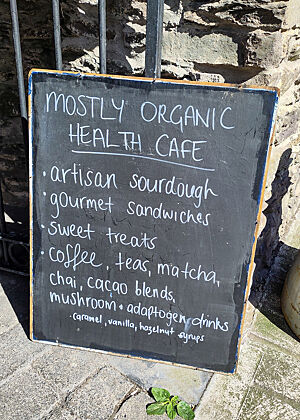 MOSTLY ORGANIC
HEALTH CAFE
• artisan sourdough
• gourmet sandwiches
• sweet treats
• coffee, teas, matcha,
chai, cacao blends,
mushroom + adaptogen drinks
• caramel, vanilla, hazelnut syrups